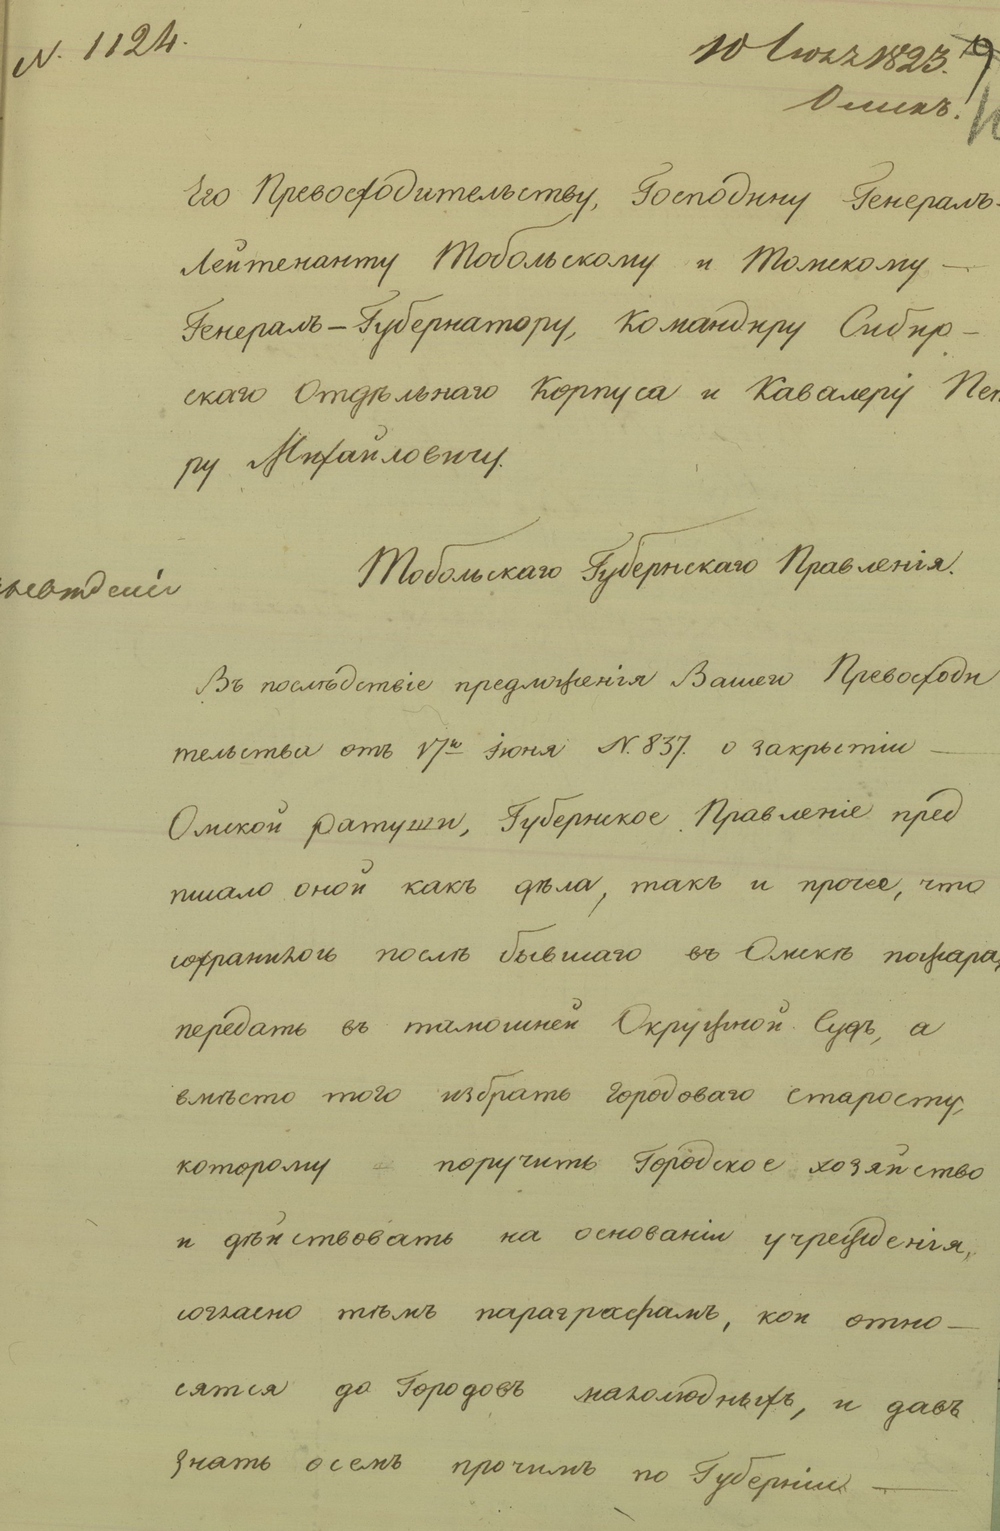 N. 1124.
10 Июля 1823.
Омскъ.
Его Превосходительству, Господину Генералъ-
Лейтенанту Тобольскому и Томскому —
Генералъ-Губернатору, Командиру Сибир-
скаго Отдѣльнаго Корпуса и Кавалеру Пет
ру Михайловичу.
Тобольскаго Губернскаго Правленія.
Въ послѣдствіе предложенія Вашего Превосходи
тельства отъ 17го Іюня N. 837. о закрытіи —
Омской ратуши, Губернское Правленіе пред
писало оной какъ дѣла, такъ и прочее, что
сохранилось послѣ бывшаго въ Омскѣ пожара,
передать въ тамошней Окружной Судъ, а
вмѣсто того избрать городоваго старосту,
которому поручить Городское хозяйство
и дѣйствовать на основаніи учрежденія,
согласно тѣмъ параграфамъ, кои отно—
сятся до Городовъ малолюдныхъ, и давъ
знать о семъ прочимъ по Губерніи —